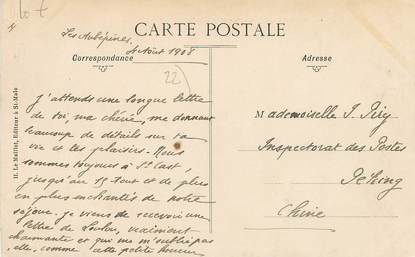 CARTE POSTALE
Les Aubépines
4 Août 1908
Correspondance
Adresse
22
J'attends une longue lettre
de toi, ma chérie, me donnant
beaucoup de détails sur ta
vie et tes plaisirs. Nous
sommes toujours à St Cast,
jusqu'au 15 Août et de plus
en plus enchantés de notre
séjour. Je viens de recevoir une
lettre de Loulou, vraiment
charmante et qui ne m'oublie pas
elle, comme cette petite
Mademoiselle J. Piry
Inspectorat des Postes
Péking
Chine
H. Le Mallat, Editeur à St-Malo